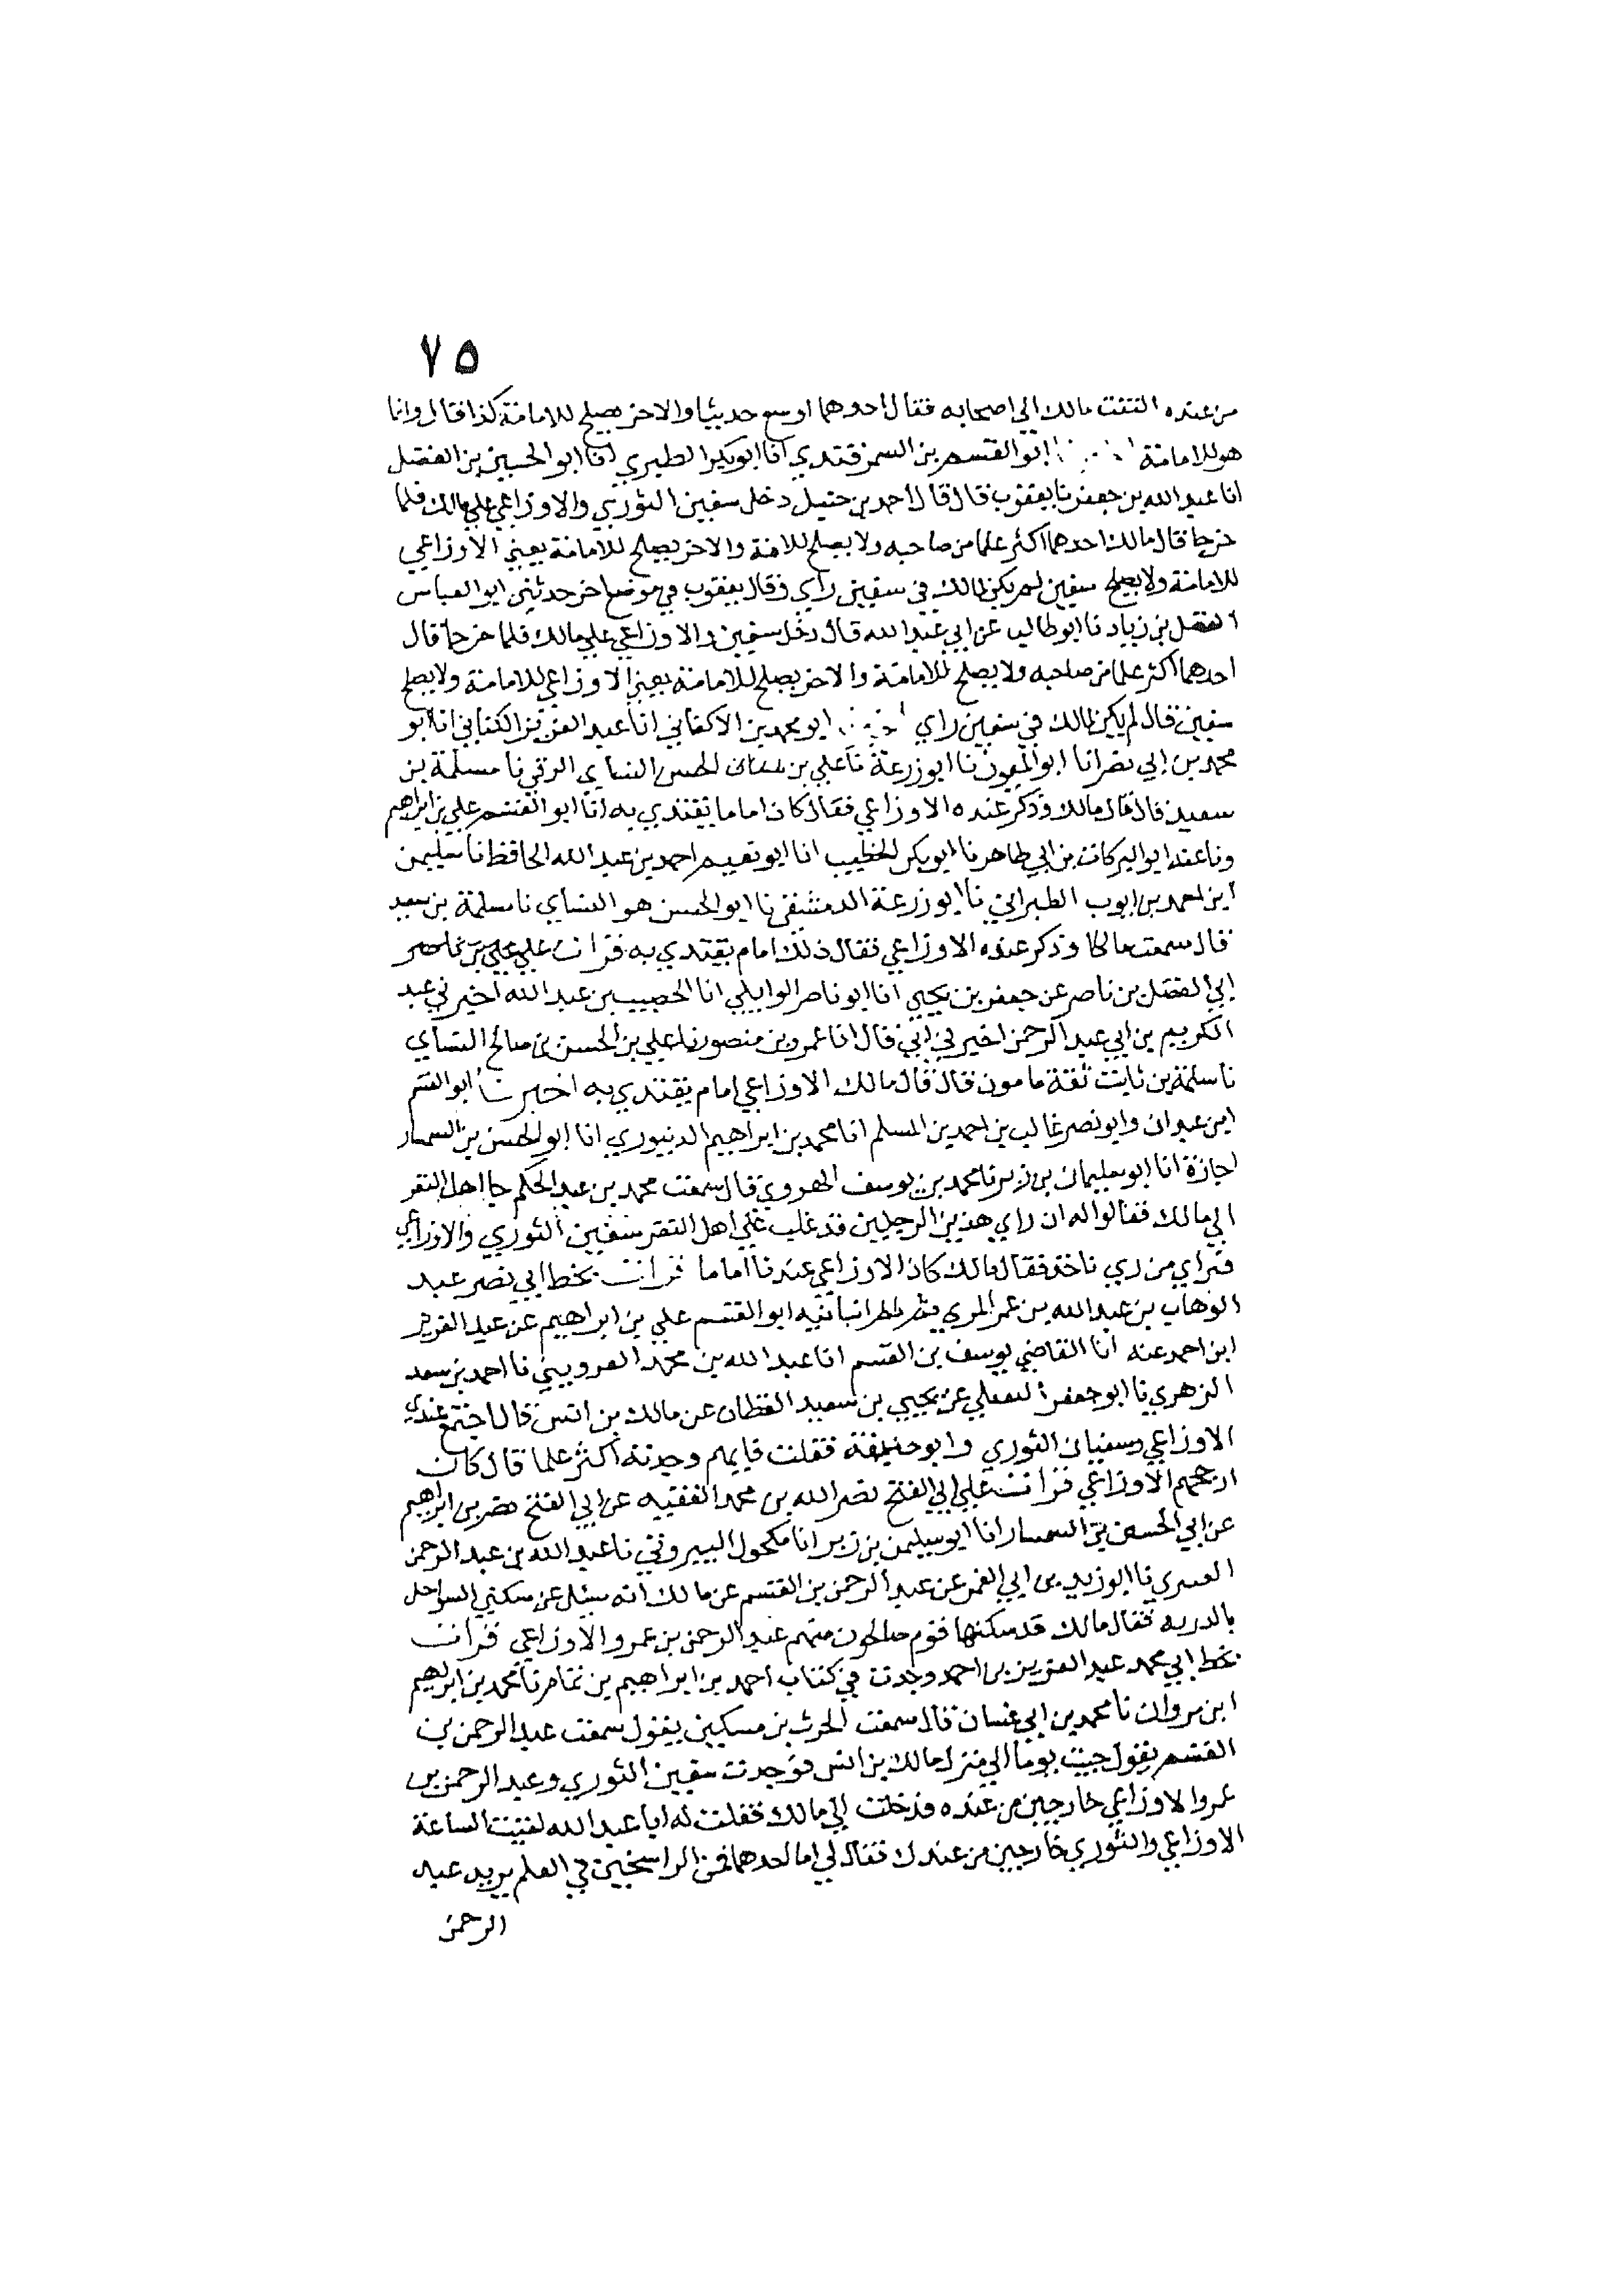 ٧٥
من عنده التفت مالك الي اصحابه فقال احدهما اوسع حديثا والاخر يصلح للامامة كذا قال وانا
هو للامامة ابو القسم بن السمرقندي انا ابو بكر الطبري انا ابو الحسين بن الفضل
انا عبد الله بن جعفر نا يعقوب قال قال احمد بن حنبل دخل سفين الثوري والاوزاعي علي مالك فلما
خرجا قال مالك احدهما اكثر علما من صاحبه ولا يصلح للامة والاخر يصلح للامامة يعني الاوزاعي
للامامة ولا يصلح سفين لم يكن لمالك في سفين راي وقال يعقوب في موضع اخر حدثني ابو العباس
الفضل بن زياد نا ابو طالب عن ابي عبد الله قال دخل سفين والاوزاعي علي مالك فلما خرجا قال
احدهما اكثر علما من صاحبه ولا يصلح للامامة والاخر يصلح للامامة يعني الاوزاعي للامامة ولا يصلح
سفين قال لم يكن لمالك في سفين راي ابو محمد بن الاكفاني انا عبد العزيز الكتاني انا ابو
محمد بن ابي نصر انا ابو الميمون نا ابو زرعة نا علي بن الحسن النساي الرقي نا مسلمة بن
سعيد قال قال مالك وذكر عنده الاوزاعي فقال كان اماما يقتدي به انا ابو القسم علي بن ابراهيم
ونا عنه ابو البركات بن ابي طاهر نا ابو بكر الخطيب انا ابو نعيم احمد بن عبد الله الحافظ نا سليمن
ابن احمد بن ايوب الطبراني نا ابو زرعة الدمشقي نا ابو الحسن هو النساي نا مسلمة بن سعيد
قال سمعت مالكا وذكر عنده الاوزاعي فقال ذلك امام يقتدي به قرات علي علي بن ناصر
ابي الفضل بن ناصر عن جعفر بن يحيي انا ابو ناصر الوايلي انا الخصيب بن عبد الله اخبرني عبد
الكريم بن ابي عبد الرحمن اخبرني ابي قال انا عمرو بن منصور نا علي بن الحسن بن صالح النساي
نا سلمة بن ثابت ثقة مامون قال قال مالك الاوزاعي امام يقتدي به اخبرنا ابو القسم
ابن عبدان وابو نصر غالب بن احمد بن المسلم انا محمد بن ابراهيم الدينوري انا ابو الحسن بن السمسار
اجازة انا ابو سليمان بن زبر نا محمد بن يوسف الهروي قال سمعت محمد بن عبد الحكم جا اهل الثغر
الي مالك فقالوا له ان راي هذين الرجلين قد غلب علي اهل الثغر سفين الثوري والاوزاعي
فتراي من ري ناخذ فقال مالك كان الاوزاعي عندنا اماما قرات بخط ابي نصر عبد
الوهاب بن عبد الله بن عمر المري انبانيه ابو القسم علي بن ابراهيم عن عبد العزيز
ابن احمد عنه انا القاضي يوسف بن القسم انا عبد الله بن محمد نا احمد بن سعد
الزهري نا ابو جعفر النفيلي عن يحيي بن سعيد القطان عن مالك بن انس قال اجتمع عندي
الاوزاعي وسفيان الثوري وابو حنيفة فقلت فايهم وجدته اكثر علما قال كان
ارجحهم الاوزاعي قرات علي ابي الفتح نصر الله بن محمد الفقيه عن ابي الفتح نصر بن ابراهيم
عن ابي الحسين بن السمسار انا ابو سليمن بن زبر انا مكحول البيروتي نا عبد الله بن عبد الرحمن
نا ابو زيد بن ابي الغمر عن عبد الرحمن بن القسم عن مالك انه سئل عن سكني السواحل
بالدريه فقال مالك قد سكنها قوم صالحون منهم عبد الرحمن بن عمرو الاوزاعي قرات
بخط ابي محمد عبد العزيز بن احمد وجدت في كتاب احمد بن ابراهيم بن تمام نا محمد بن ابراهيم
ابن مروان نا محمد بن ابي غسان قال سمعت الحرث بن مسكين يقول سمعت عبد الرحمن بن
القسم يقول جيت يوما الي منزل مالك بن انس فوجدت سفين الثوري وعبد الرحمن بن
عمرو الاوزاعي خارجين من عنده فدخلت الي مالك فقلت له ايا عبد الله لقيت الساعة
الاوزاعي والثوري خارجين من عندك فقال لي اما احدهما فمن الراسخين في العلم يريد عبد
الرحمن